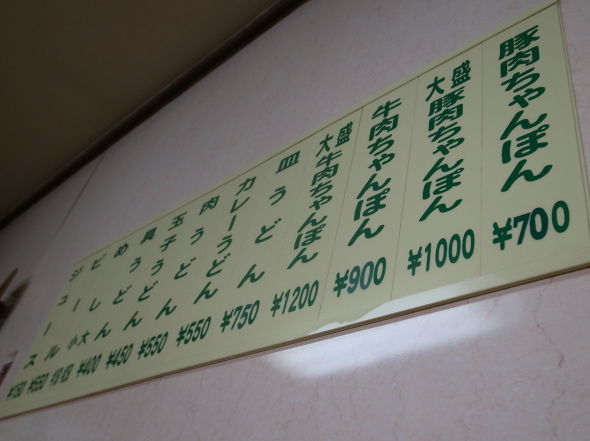 豚肉ちゃんぽん ¥700
大盛豚肉ちゃんぽん ¥1000
牛肉ちゃんぽん ¥900
大盛牛肉ちゃんぽん ¥1200
皿うどん ¥750
カレーうどん ¥550
肉うどん ¥550
玉子うどん ¥450
具うどん ¥400
めし 小大
ビール
ジュース ¥150